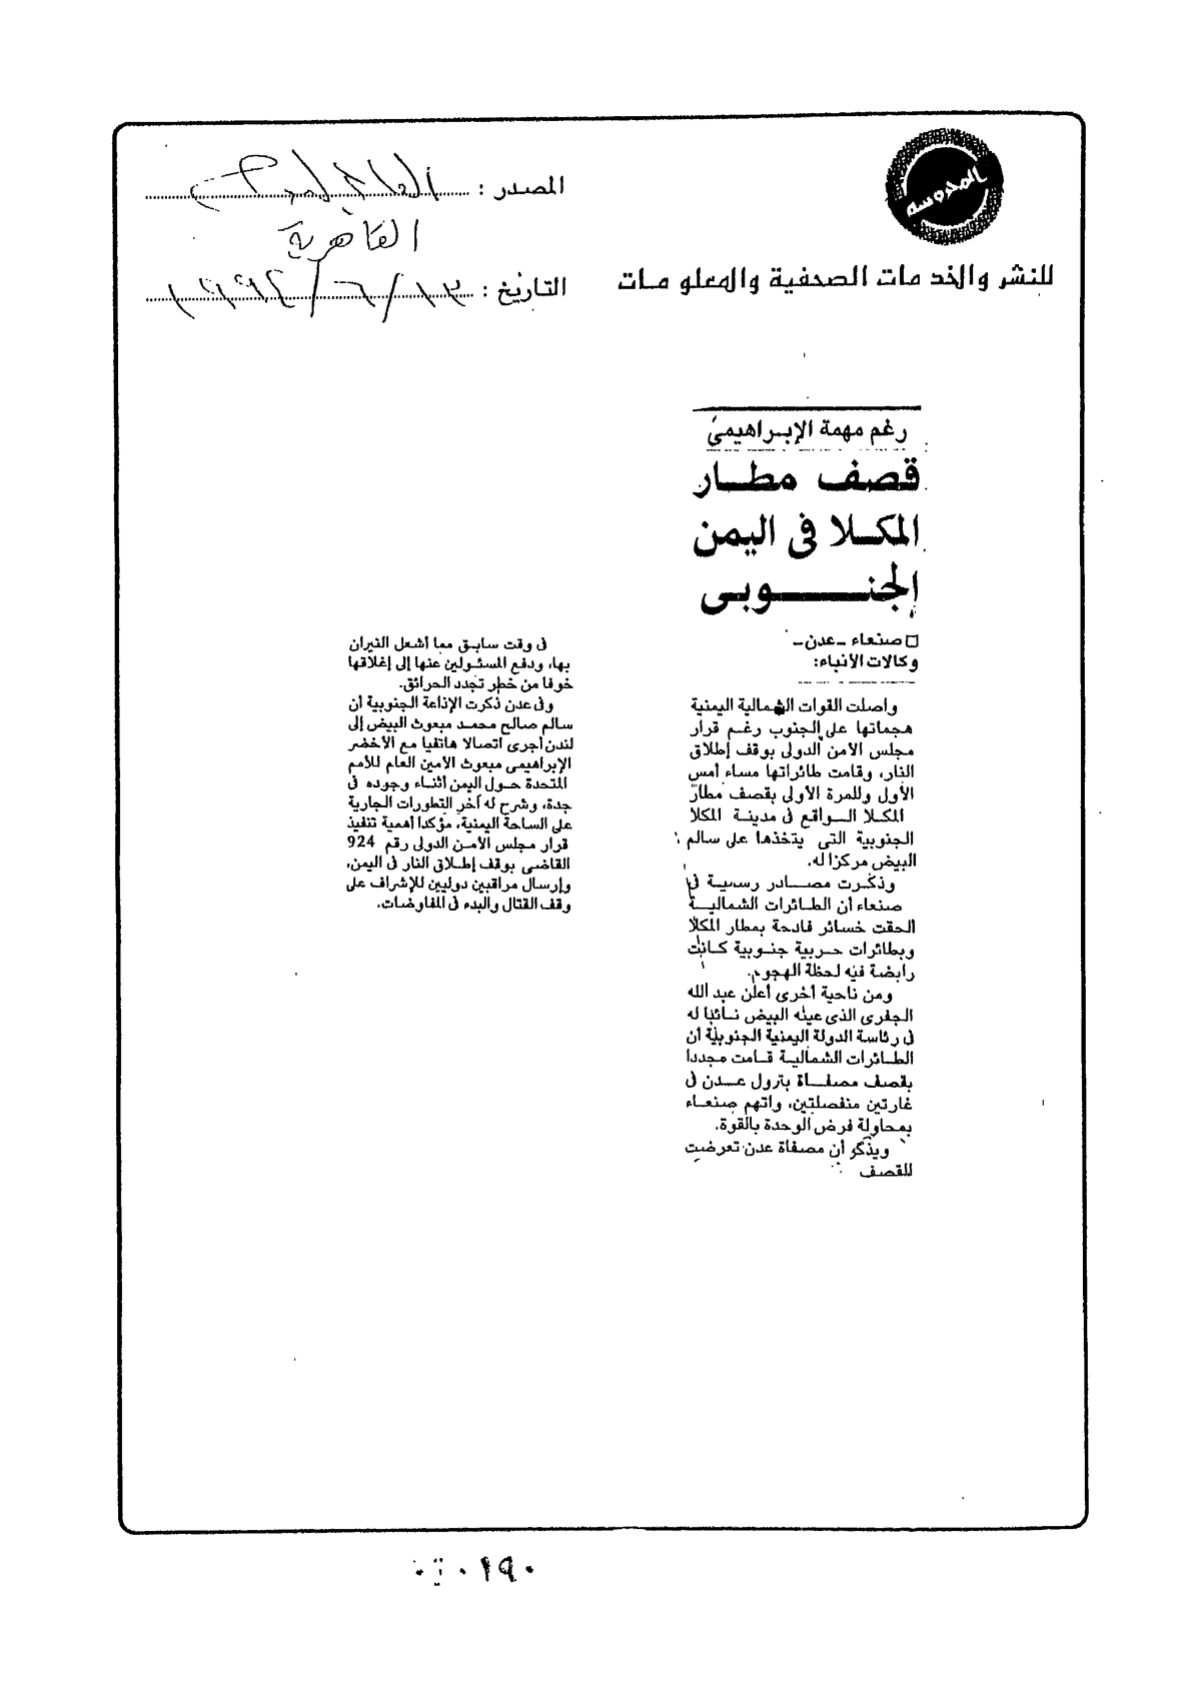 المحروسة
للنشر والخدمات الصحفية والمعلومات
المصدر : العالم اليوم
القاهرية
التاريخ : ١٣/٦/١٩٩٤
رغم مهمة الإبراهيمى
قصف مطار
المكلا فى اليمن
الجنوبى
□ صنعاء - عدن -
وكالات الأنباء:
واصلت القوات الشمالية اليمنية
هجماتها على الجنوب رغم قرار
مجلس الأمن الدولى بوقف إطلاق
النار، وقامت طائراتها مساء أمس
الأول وللمرة الأولى بقصف مطار
المكلا الواقع في مدينة المكلا
الجنوبية التى يتخذها على سالم
البيض مركزا له.
وذكرت مصادر رسمية فى
صنعاء أن الطائرات الشمالية
الحقت خسائر فادحة بمطار المكلا
وبطائرات حربية جنوبية كانت
رابضة فيه لحظة الهجوم.
ومن ناحية أخرى أعلن عبد الله
الجفرى الذى عينه البيض نائبا له
فى رئاسة الدولة اليمنية الجنوبية أن
الطائرات الشمالية قامت مجددا
بقصف مصفاة بترول عدن فى
غارتين منفصلتين، واتهم صنعاء
بمحاولة فرض الوحدة بالقوة.
ويذكر أن مصفاة عدن تعرضت
للقصف
فى وقت سابق مما أشعل النيران
بها، ودفع المسئولين عنها إلى إغلاقها
خوفا من خطر تجدد الحرائق.
وفى عدن ذكرت الإذاعة الجنوبية أن
سالم صالح محمد مبعوث البيض إلى
لندن أجرى اتصالا هاتفيا مع الأخضر
الإبراهيمى مبعوث الأمين العام للأمم
المتحدة حول اليمن أثناء وجوده فى
جدة، وشرح له آخر التطورات الجارية
على الساحة اليمنية، مؤكدا أهمية تنفيذ
قرار مجلس الأمن الدولى رقم 924
القاضى بوقف إطلاق النار فى اليمن،
وإرسال مراقبين دوليين للإشراف على
وقف القتال والبدء فى المفاوضات.